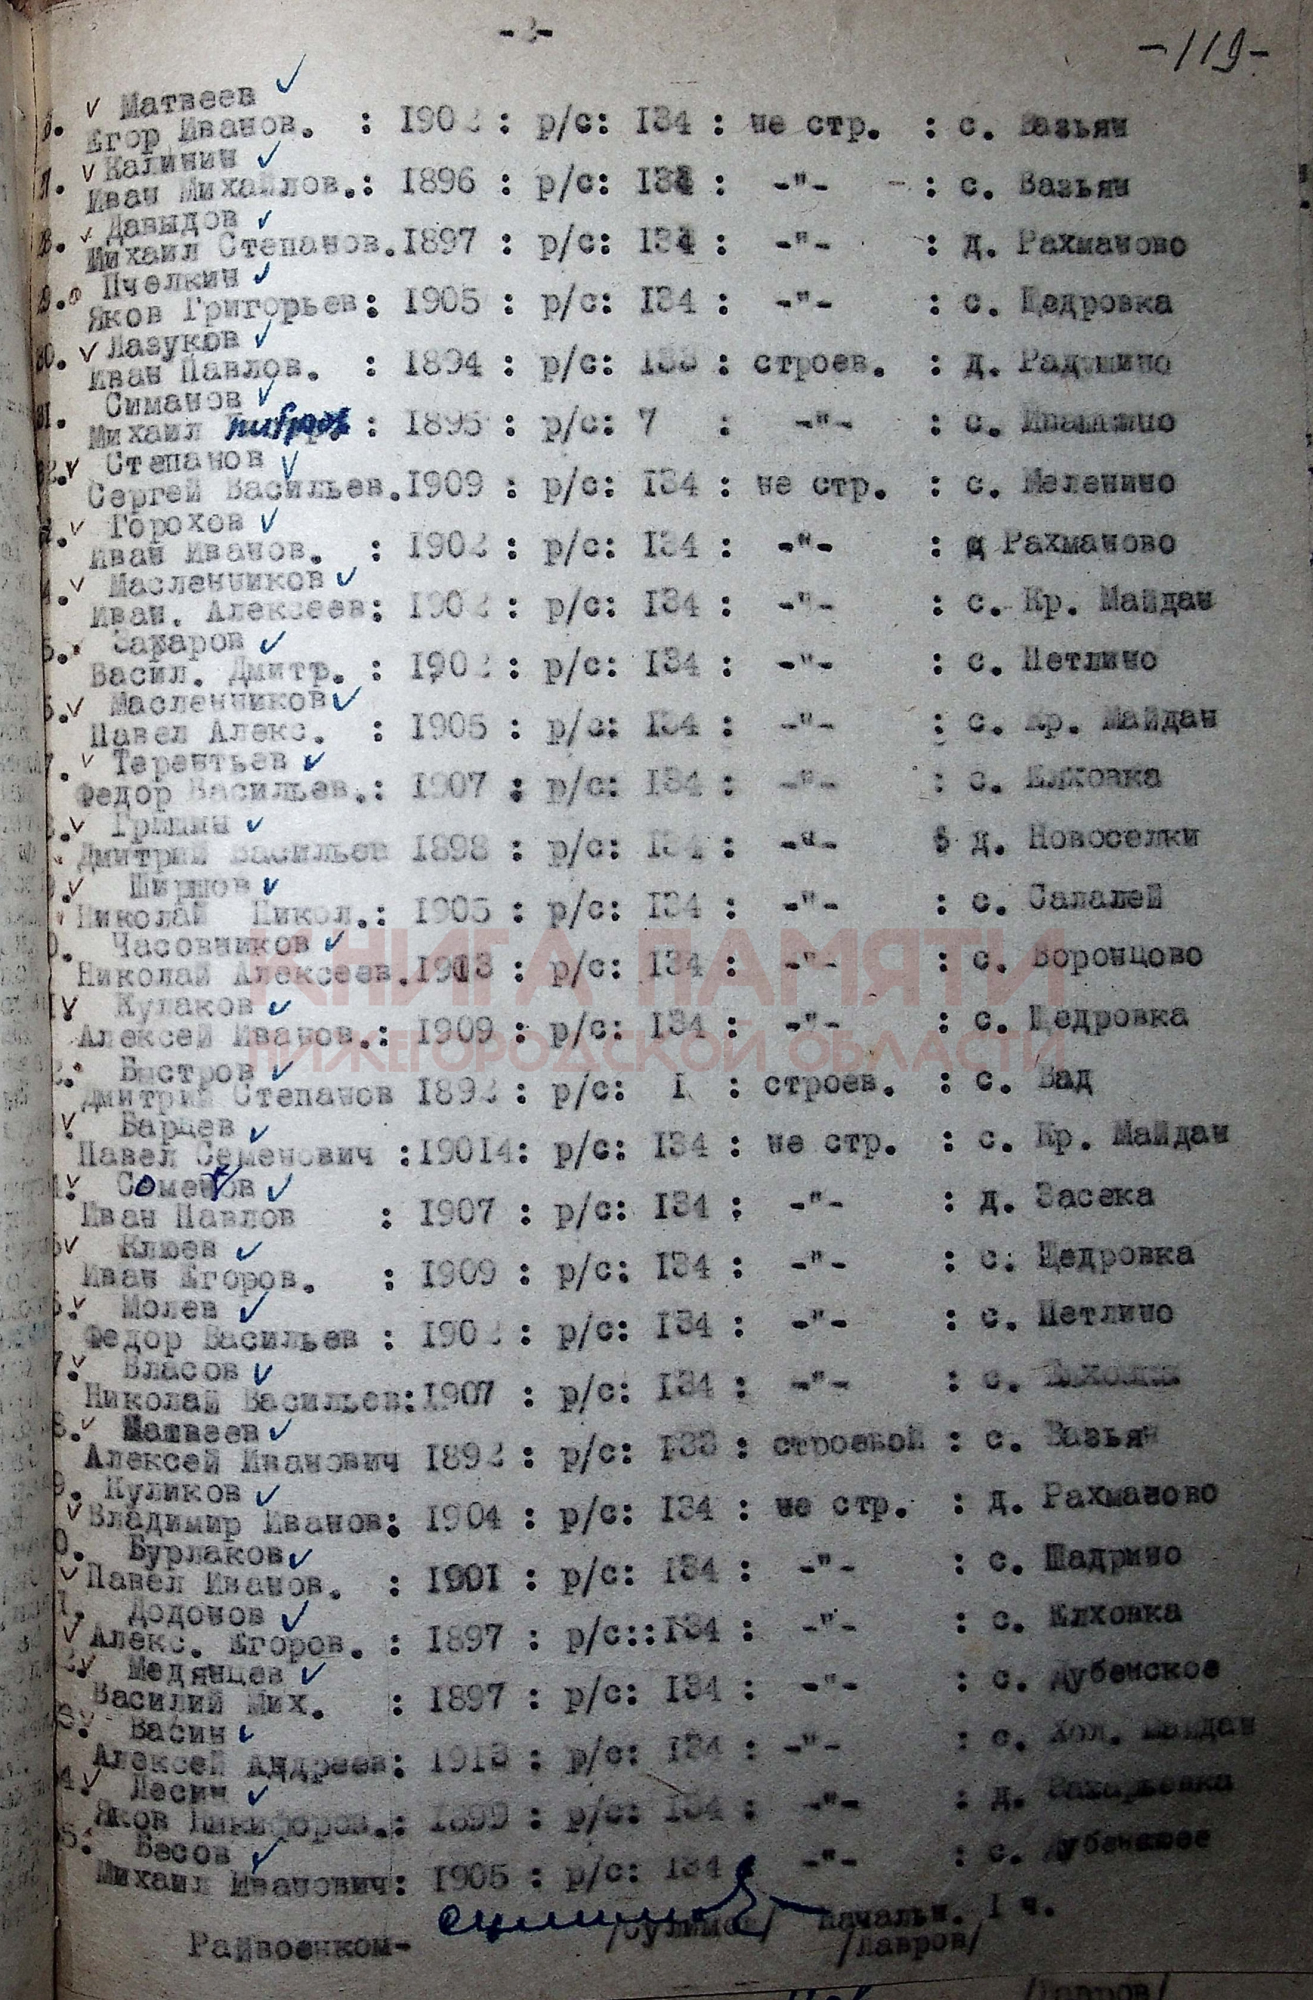 -119-
Матвеев
Егор Иванов. : 1902 : р/с: 134 : не стр. : с. Вазьян
Калинин
Иван Михайлов.: 1896 : р/с: 134 : -"- : с. Вазьян
Давыдов
Михаил Степанов. 1897 : р/с: 134 : -"- : д. Рахманово
Пчелкин
Яков Григорьев: 1905 : р/с: 134 : -"- : с. Щедровка
80. Лазуков
Иван Павлов. : 1894 : р/с: 133 : строев. : д.
81. Симанов
Михаил : 1895 : р/с: 7 : -"- : с.
Степанов
Сергей Васильев. 1909 : р/с: 134 : не стр. : с. Меленино
Горохов
Иван Иванов. : 1902 : р/с: 134 : -"- : д Рахманово
Масленников
Иван. Алексеев: 1902 : р/с: 134 : -"- : с. Кр. Майдан
Захаров
Васил. Дмитр. : 1902 : р/с: 134 : -"- : с. Петлино
Масленников
Павел Алекс. : 1905 : р/с: 134 : -"- : с. Кр. Майдан
Терентьев
Федор Васильев.: 1907 : р/с: 134 : -"- : с. Елховка
Гришин
Дмитрий Васильев 1898 : р/с: 134 : -"- : д. Новоселки
Ширшов
Николай Никол.: 1905 : р/с: 134 : -"- : с. Салалей
Часовников
Николай Алексеев. 1913 : р/с: 134 : -"- : с. Воронцово
Кулаков
Алексей Иванов.: 1909 : р/с: 134 : -"- : с. Щедровка
Быстров
Дмитрий Степанов 1892 : р/с: 1 : строев. : с. Вад
Барцев
Павел Семенович :19014: р/с: 134 : не стр. : с. Кр. Майдан
Иван Павлов : 1907 : р/с: 134 : -"- : д. Засека
Клюев
Иван Егоров. : 1909 : р/с: 134 : -"- : с. Щедровка
Молев
Федор Васильев : 1902 : р/с: 134 : -"- : с. Петлино
Власов
Николай Васильев: 1907 : р/с: 134 : -"- : с.
Матвеев
Алексей Иванович 1892 : р/с: 133 : строевой : с. Вазьян
Куликов
Владимир Иванов: 1904 : р/с: 134 : не стр. : д. Рахманово
Бурлаков
Павел Иванов. : 1901 : р/с: 134 : -"- : с. Шадрино
Додонов
Алекс. Егоров. : 1897 : р/с::134 : -"- : с. Елховка
Медянцев
Василий Мих. : 1897 : р/с: 134 : -"- : с. Дубенское
Васин
Алексей Андреев: 1913 : р/с: 134 : -"- : с. Хол. Майдан
Лесин
Яков Никифоров.: 1899 : р/с: 134 : -"- : д. Захарьевка
Бесов
Михаил Иванович: 1905 : р/с: 134 : -"- : с. Дубенское
Райвоенком- /Сулимов/ Начальн. 1 ч.
/Лавров/
/Лавров/
КНИГА ПАМЯТИ
НИЖЕГОРОДСКОЙ ОБЛАСТИ